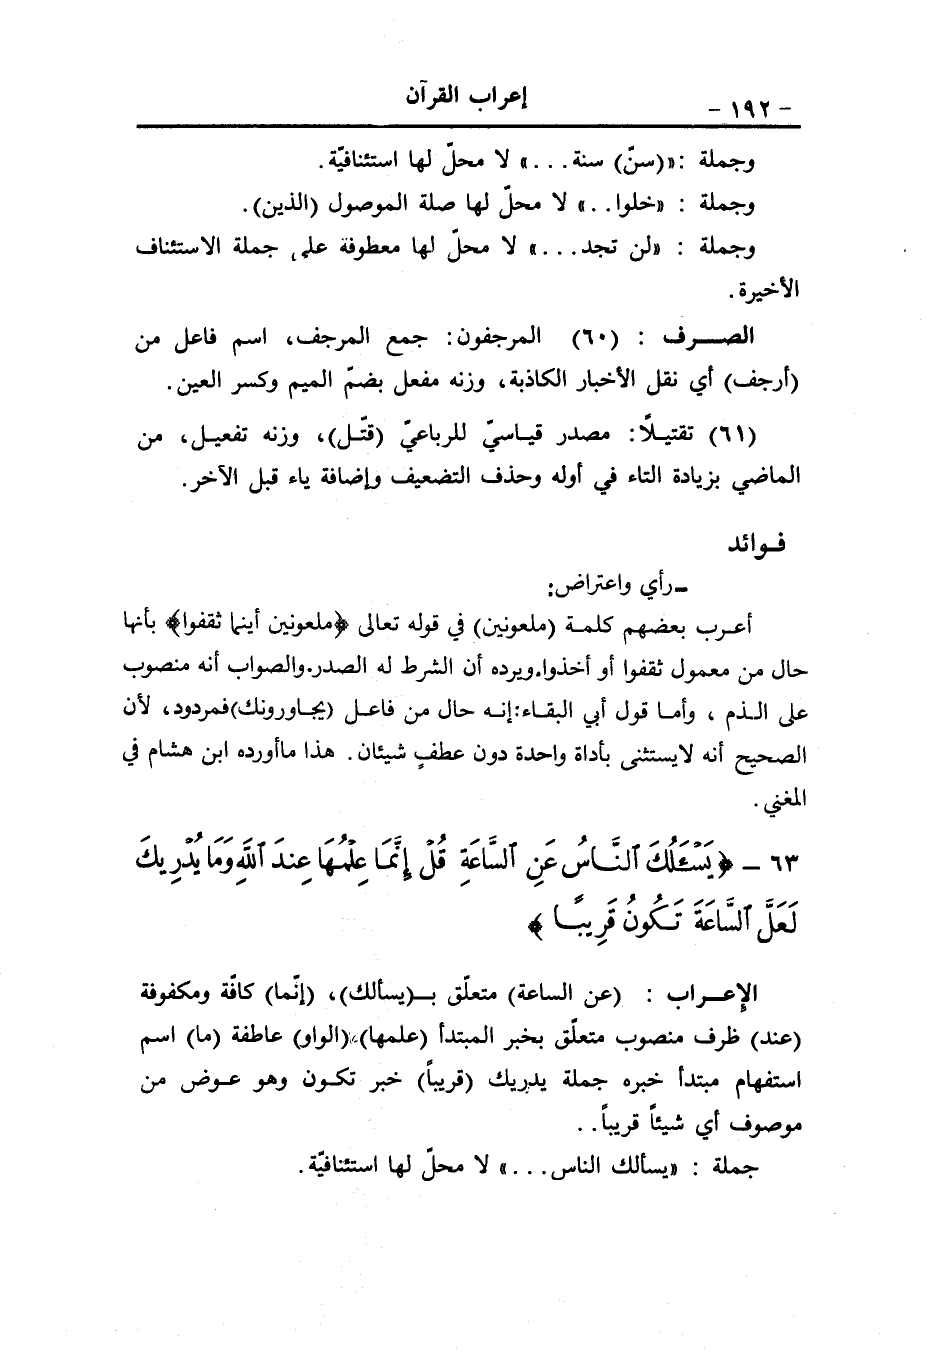 - ١٩٢ -
إعراب القرآن
وجملة :«(سنّ) سنة...» لا محلّ لها استئنافيّة.
وجملة : «خلوا..» لا محلّ لها صلة الموصول (الذين).
وجملة : «لن تجد...» لا محلّ لها معطوفة على جملة الاستئناف
الأخيرة.
الصـــرف : (٦٠) المرجفون: جمع المرجف، اسم فاعل من
(أرجف) أي نقل الأخبار الكاذبة، وزنه مفعل بضمّ الميم وكسر العين.
(٦١) تقتيـلًا: مصدر قيـاسيّ للرباعيّ (قتّـل)، وزنه تفعيـل، من
الماضي بزيادة التاء في أوله وحذف التضعيف وإضافة ياء قبل الآخر.
فـوائد
ـ رأي واعتراض:
أعـرب بعضهم كلمـة (ملعونين) في قوله تعالى ﴿ملعونين أينما ثقفوا﴾ بأنها
حال من معمول ثقفوا أو أخذوا.ويرده أن الشرط له الصدر.والصواب أنه منصوب
على الـذم ، وأمـا قول أبي البقـاء:إنـه حال من فاعـل (يجـاورونك)فمردود، لأن
الصحيح أنه لايستثنى بأداة واحدة دون عطفٍ شيئان. هذا ماأورده ابن هشام في
المغني.
٦٣ - ﴿يَسْـَٔلُكَ ٱلنَّاسُ عَنِ ٱلسَّاعَةِ قُلْ إِنَّمَا عِلْمُهَا عِندَ ٱللَّهِ وَمَا يُدْرِيكَ
لَعَلَّ ٱلسَّاعَةَ تَكُونُ قَرِيبًا﴾
الإعـراب : (عن الساعة) متعلّق بـ(يسألك)، (إنّما) كافّة ومكفوفة
(عند) ظرف منصوب متعلّق بخبر المبتدأ (علمها)،(الواو) عاطفة (ما) اسم
استفهام مبتدأ خبره جملة يدريك (قريباً) خبر تكـون وهو عـوض من
موصوف أي شيئاً قريباً..
جملة : «يسألك الناس...» لا محلّ لها استئنافيّة.